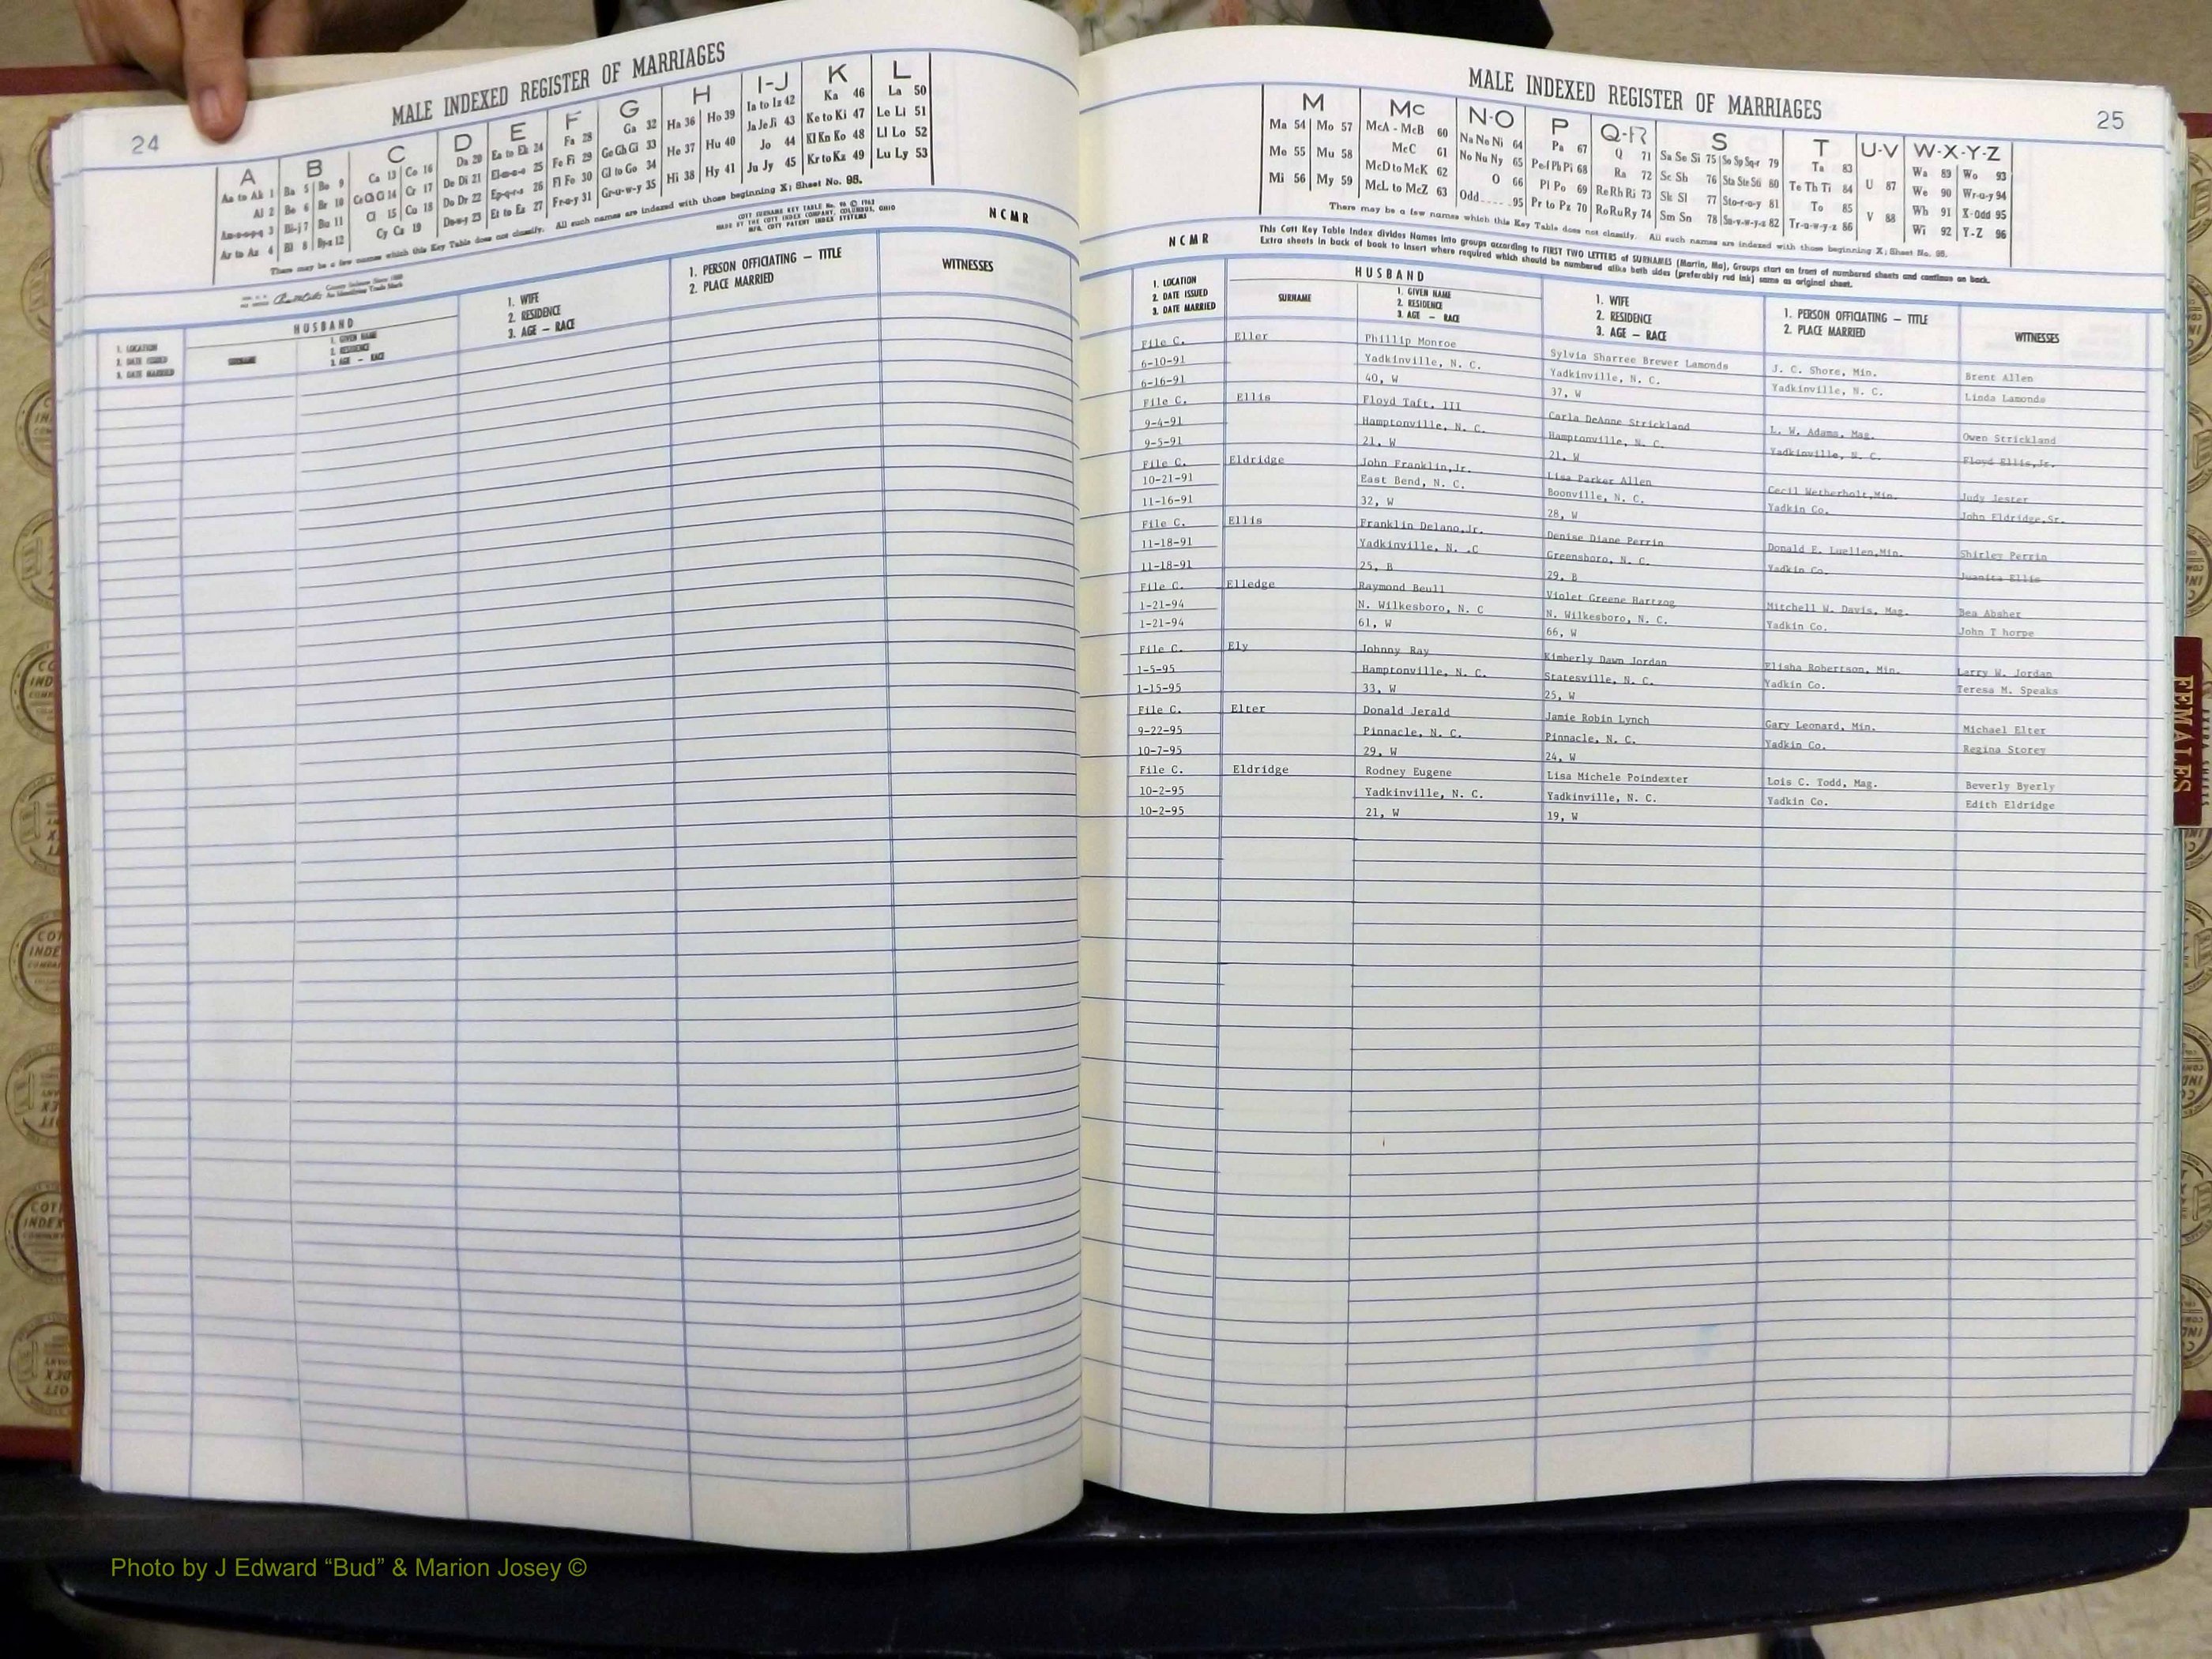 24
MALE INDEXED REGISTER OF MARRIAGES
A B C D E F G H I-J K L
Aa to Ak 1 Ba 5 Bo 9 Ca 13 Co 16 Da 20 Ea to Ek 24 Fa 28 Ga 32 Ha 36 Ho 39 Ia to Iz 42 Ka 46 La 50
Al 2 Be 6 Br 10 Ce Ch Ci 14 Cr 17 De Di 21 El-m-n-o 25 Fe Fi 29 Ge Gh Gi 33 He 37 Hu 40 Ja Je Ji 43 Ke to Ki 47 Le Li 51
Am-n-o-p-q 3 Bi-j 7 Bu 11 Cl 15 Cu 18 Do Dr 22 Ep-q-r-s 26 Fl Fo 30 Gl to Go 34 Hi 38 Hy 41 Jo 44 Kl Kn Ko 48 Ll Lo 52
Ar to Az 4 Bl 8 By-z 12 Cy Cz 19 Du-w-y 23 Et to Ez 27 Fr-u-y 31 Gr-u-w-y 35 Ju Jy 45 Kr to Kz 49 Lu Ly 53
There may be a few names which this Key Table does not classify. All such names are indexed with those beginning X; Sheet No. 95.
COTT SURNAME KEY TABLE No. 96 © 1962
BY THE COTT INDEX COMPANY, COLUMBUS, OHIO
MFG. COTT PATENT INDEX SYSTEMS
NCMR
HUSBAND
1. LOCATION
2. DATE ISSUED
3. DATE MARRIED
SURNAME
1. GIVEN NAME
2. RESIDENCE
3. AGE — RACE
1. WIFE
2. RESIDENCE
3. AGE — RACE
1. PERSON OFFICIATING — TITLE
2. PLACE MARRIED
WITNESSES
MALE INDEXED REGISTER OF MARRIAGES
25
M Mc N-O P Q-R S T U-V W-X-Y-Z
Ma 54 Mo 57 McA - McB 60 Na Ne Ni 64 Pa 67 Q 71 Sa Se Si 75 So Sp Sq-r 79 Ta 83 Wa 89 Wo 93
Me 55 Mu 58 McC 61 No Nu Ny 65 Pe-f Ph Pi 68 Ra 72 Sc Sh 76 Sta Ste Sti 80 Te Th Ti 84 U 87 We 90 Wr-u-y 94
Mi 56 My 59 McD to McK 62 O 66 Pl Po 69 Re Rh Ri 73 Sk Sl 77 Sto-r-u-y 81 To 85 V 88 Wh 91 X-Odd 95
McL to McZ 63 Odd 95 Pr to Pz 70 Ro Ru Ry 74 Sm Sn 78 Su-v-w-y-z 82 Tr-u-w-y-z 86 Wi 92 Y-Z 96
There may be a few names which this Key Table does not classify. All such names are indexed with those beginning X; Sheet No. 95.
NCMR
This Cott Key Table Index divides Names into groups according to FIRST TWO LETTERS of SURNAMES (Martin, Ma), Groups start on front of numbered sheets and continue on back.
Extra sheets in back of book to insert where required which should be numbered alike both sides (preferably red ink) same as original sheet.
HUSBAND
1. LOCATION
2. DATE ISSUED
3. DATE MARRIED
SURNAME
1. GIVEN NAME
2. RESIDENCE
3. AGE — RACE
1. WIFE
2. RESIDENCE
3. AGE — RACE
1. PERSON OFFICIATING — TITLE
2. PLACE MARRIED
WITNESSES
File C. Eller Phillip Monroe Sylvia Sharree Brewer Lamonds J. C. Shore, Min. Brent Allen
6-10-91 Yadkinville, N. C. Yadkinville, N. C. Yadkinville, N. C. Linda Lamonds
6-16-91 40, W 37, W
File C. Ellis Floyd Taft, III Carla DeAnne Strickland L. W. Adams, Mag. Owen Strickland
9-4-91 Hamptonville, N. C. Hamptonville, N. C. Yadkinville, N. C. Floyd Ellis,Jr.
9-5-91 21, W 21, W
File C. Eldridge John Franklin,Jr. Lisa Parker Allen Cecil Wetherholt,Min. Judy Jester
10-21-91 East Bend, N. C. Boonville, N. C. Yadkin Co. John Eldridge,Sr.
11-16-91 32, W 28, W
File C. Ellis Franklin Delano,Jr. Denise Diane Perrin Donald E. Luellen,Min. Shirley Perrin
11-18-91 Yadkinville, N. .C Greensboro, N. C. Yadkin Co. Juanita Ellis
11-18-91 25, B 29, B
File C. Elledge Raymond Beull Violet Greene Hartzog Mitchell W. Davis, Mag. Bea Absher
1-21-94 N. Wilkesboro, N. C N. Wilkesboro, N. C. Yadkin Co. John T horpe
1-21-94 61, W 66, W
File C. Ely Johnny Ray Kimberly Dawn Jordan Elisha Robertson, Min. Larry W. Jordan
1-5-95 Hamptonville, N. C. Statesville, N. C. Yadkin Co. Teresa M. Speaks
1-15-95 33, W 25, W
File C. Elter Donald Jerald Jamie Robin Lynch Gary Leonard, Min. Michael Elter
9-22-95 Pinnacle, N. C. Pinnacle, N. C. Yadkin Co. Regina Storey
10-7-95 29, W 24, W
File C. Eldridge Rodney Eugene Lisa Michele Poindexter Lois C. Todd, Mag. Beverly Byerly
10-2-95 Yadkinville, N. C. Yadkinville, N. C. Yadkin Co. Edith Eldridge
10-2-95 21, W 19, W
FEMALES
Photo by J Edward “Bud” & Marion Josey ©